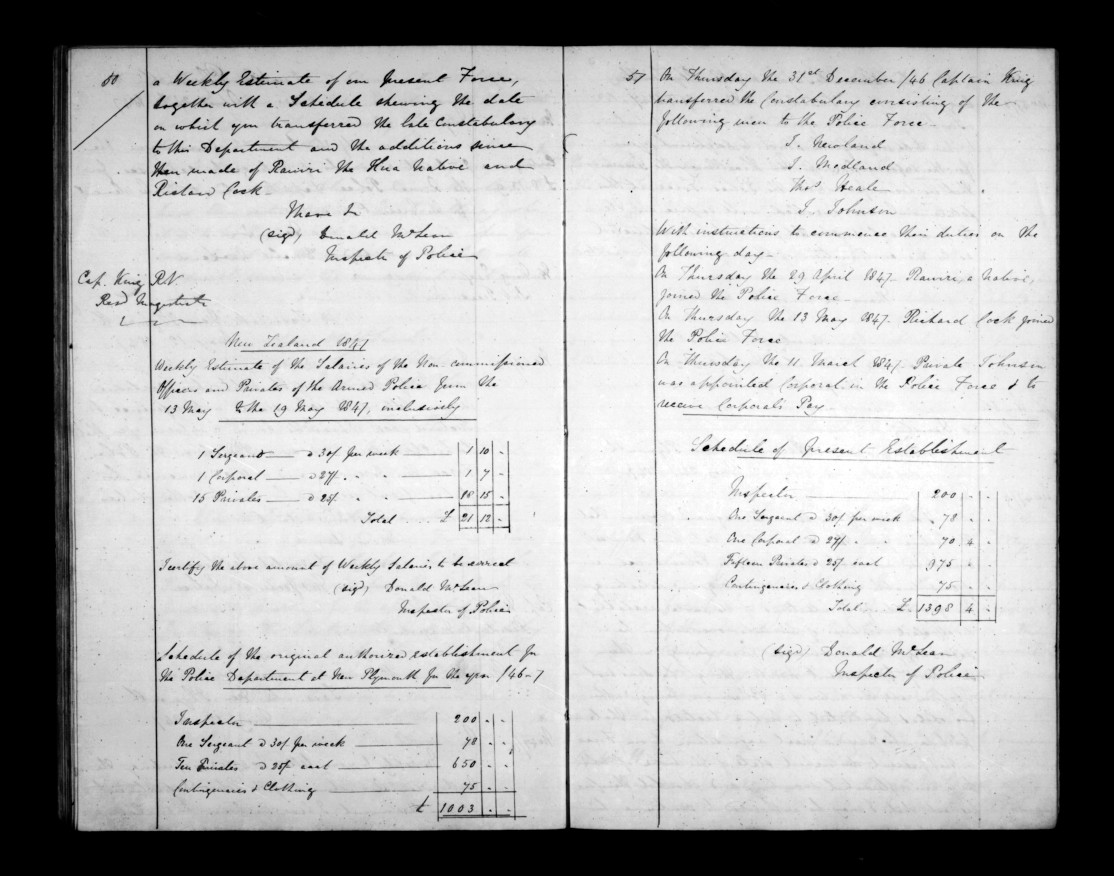 50
a Weekly Estimate of our present Force,
together with a Schedule shewing the date
on which you transferred the late Constabulary
to this Department and the additions since
then made of Rawiri the Hua Native and
Cock
I have &
(sigd) Donald McLean
Inspector of Police
Cap. King R.N.
Resd Magistrate
New Zealand 1847
Weekly Estimate of the Salaries of the Non commissioned
Officers and Privates of the Armed Police from the
13 May to the 19 May 1847, inclusively
1 Sergeant @ 30/ per week 1 10 -
1 Corporal @ 27/ " " 1 7 -
15 Privates @ 25/ " " 18 15 -
Total £ 21 12 -
I certify the above amount of Weekly Salaries to be correct
(sigd) Donald McLean
Inspector of Police
Schedule of the original authorized establishment for
the Police Department at New Plymouth for the year /46-7
Inspector 200 - -
One Sergeant @ 30/ per week 78 - -
Ten Privates @ 25/ each 650 - -
Contingencies & Clothing 75 - -
£ 1003 - -
51
On Thursday the 31st December /46 Captain King
transferred the Constabulary consisting of the
following men to the Police Force
Newland
Medland
Thos Heale
Johnson
With instructions to commence their duties on the
following day
On Thursday the 29 April 1847 Rawiri, a Native,
joined the Police Force
On Thursday the 13 May 1847 Richard Cock joined
the Police Force
On Thursday the 11 March 1847 Private Johnson
was appointed Corporal in the Police Force & to
receive Corporals Pay
Schedule of present Establishment
Inspector 200 - -
One Sergeant @ 30/ per week 78 - -
One Corporal @ 27/ " 70 4 -
Fifteen Privates @ 25/ each 975 - -
Contingencies & Clothing 75 - -
Total £ 1398 4 -
(sigd) Donald McLean
Inspector of Police